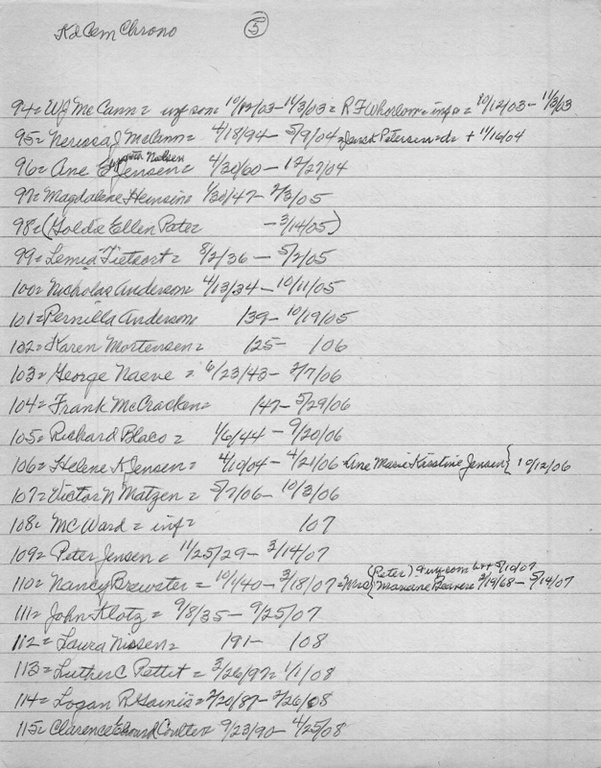 Kd Cem Chrono 5
94= WJ McCann = inf son = 10/12/03 - 11/3/03 = R F Whorlom = infa = 10/12/03 - 11/3/03
95= Nerissa J McCann = 4/18/94 - 5/9/04 = Janck Petersen = dc + 11/16/04
96= Ane Nielsen Jensen = 4/30/60 - 12/27/04
97= Magdalene Hensine 1/30/47 - 2/3/05
98= (Goldie Ellen Pater - 3/14/05)
99= Lemid Tietsort = 8/2/36 - 5/2/05
100= Nicholas Anderson = 4/13/34 - 10/11/05
101= Pernilla Anderson 139 - 10/19/05
102= Karen Mortensen = 125 - 106
103= George Naeve = 6/23/43 - 2/7/06
104= Frank McCracken = 147 - 5/29/06
105= Richard Blaco = 1/6/44 - 9/20/06
106= Helene K Jensen = 4/10/04 - 4/21/06 Ane Marie Kirstine Jensen { 10/12/06
107= Victor N Matzen = 5/7/06 - 10/3/06
108= MC Ward = inf = 107
109= Peter Jensen = 11/25/29 - 3/14/07
110= Nancy Brewster = 10/1/40 - 3/18/07 = Mrs (Peter) 5/10/07 { Mariane Beavers 2/19/68 - 5/14/07
111= John Klotz = 9/8/35 - 9/25/07
112= Laura Nissen = 191 - 108
113= Luther C Pettit = 3/26/97 = 1/1/08
114= Logan R Gainis = 2/20/87 - 2/26/08
115= Clarence Edward Coulter = 9/23/90 - 4/25/08